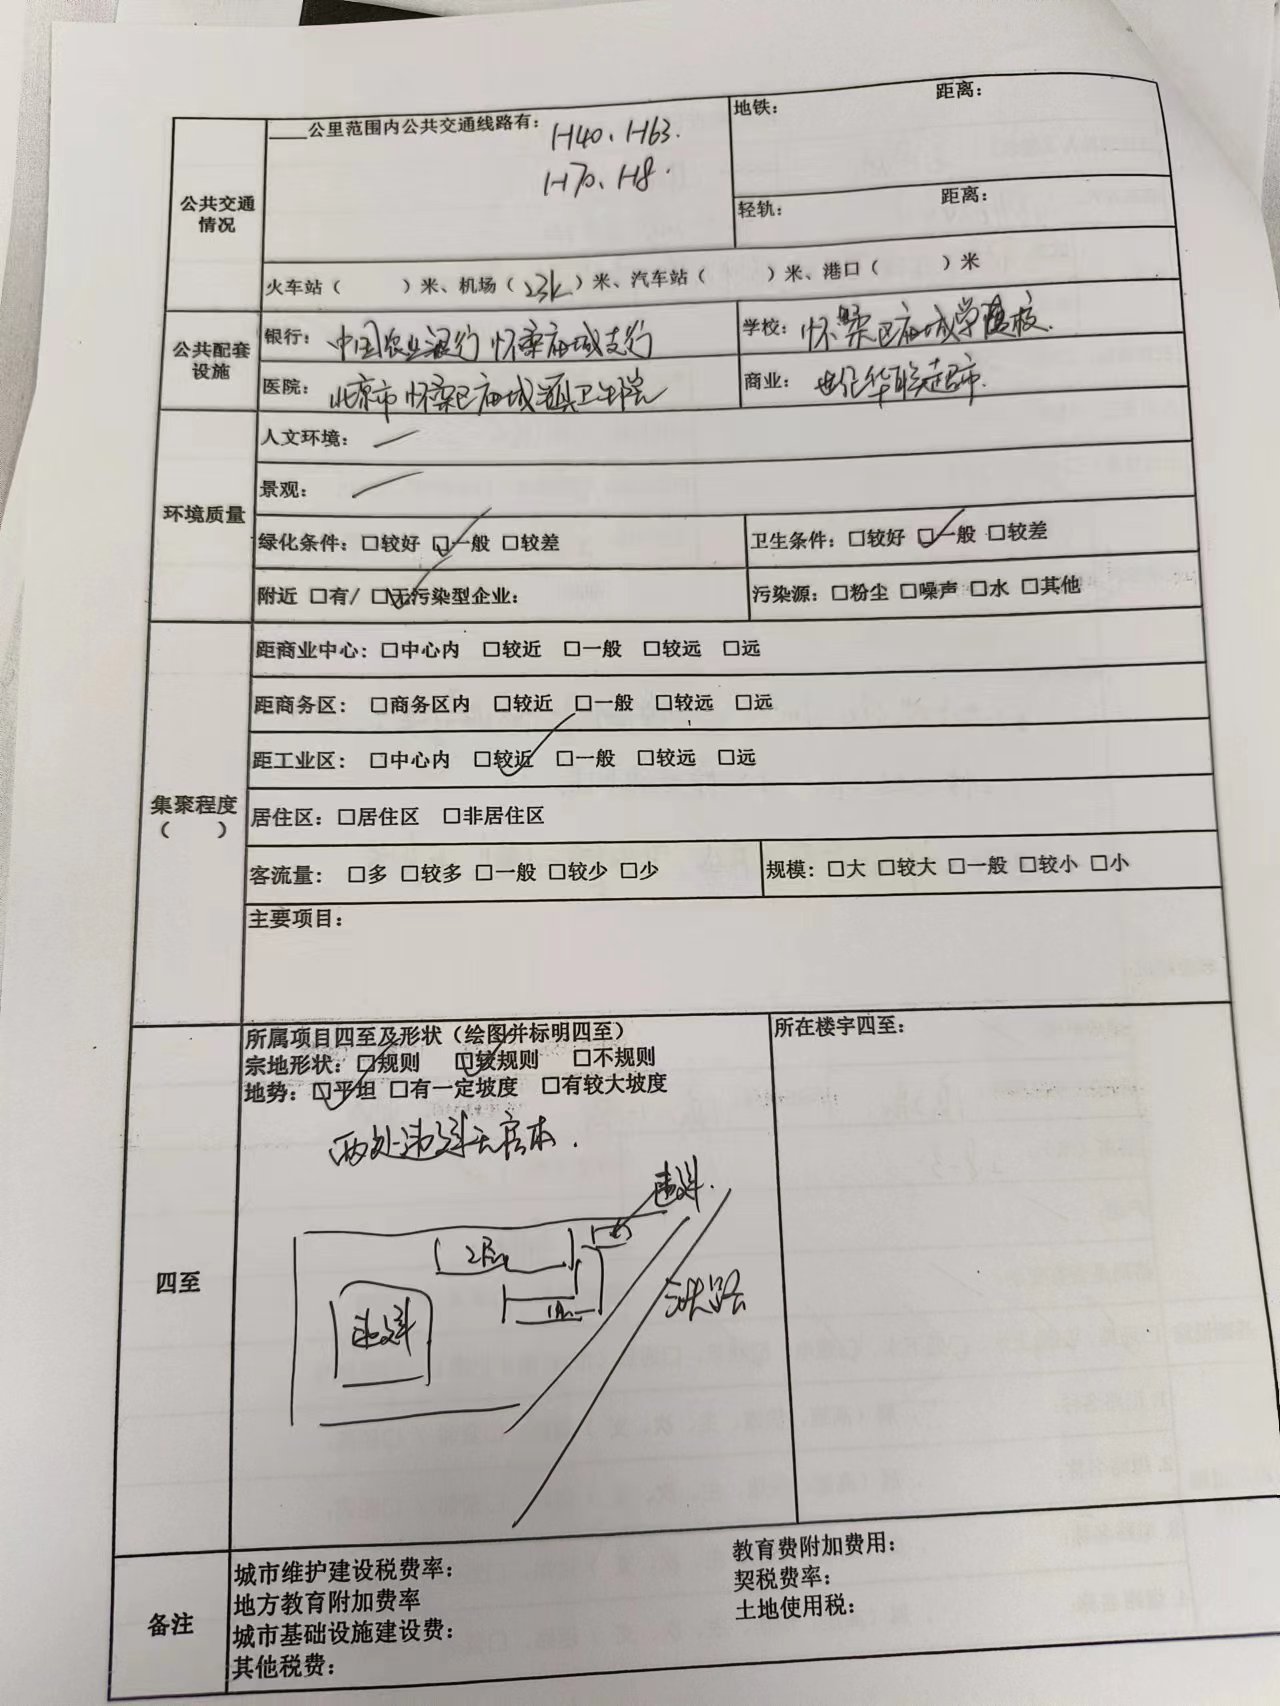 ____公里范围内公共交通线路有：H40、H63.
H70、H8.
地铁：
距离：
轻轨：
距离：
公共交通
情况
火车站（ ）米、机场（23k）米、汽车站（ ）米、港口（ ）米
公共配套
设施
银行：中国农业银行怀柔庙城支行
学校：怀柔区庙城学校.
医院：北京市怀柔区庙城镇卫生院
商业：世纪华联超市.
环境质量
人文环境：
景观：
绿化条件：□较好 ☑一般 □较差
卫生条件：□较好 ☑一般 □较差
附近 □有/ ☑无污染型企业：
污染源：□粉尘 □噪声 □水 □其他
集聚程度
（ ）
距商业中心：□中心内 □较近 □一般 □较远 □远
距商务区： □商务区内 □较近 □一般 □较远 □远
距工业区： □中心内 ☑较近 □一般 □较远 □远
居住区：□居住区 □非居住区
客流量： □多 □较多 □一般 □较少 □少
规模：□大 □较大 □一般 □较小 □小
主要项目：
四至
所属项目四至及形状（绘图并标明四至）
宗地形状：□规则 ☑较规则 □不规则
地势：☑平坦 □有一定坡度 □有较大坡度
所在楼宇四至：
两处违建无房本.
违建.
2层
1层
违建
铁路
备注
城市维护建设税费率：
地方教育附加费率
城市基础设施建设费：
其他税费：
教育费附加费用：
契税费率：
土地使用税：